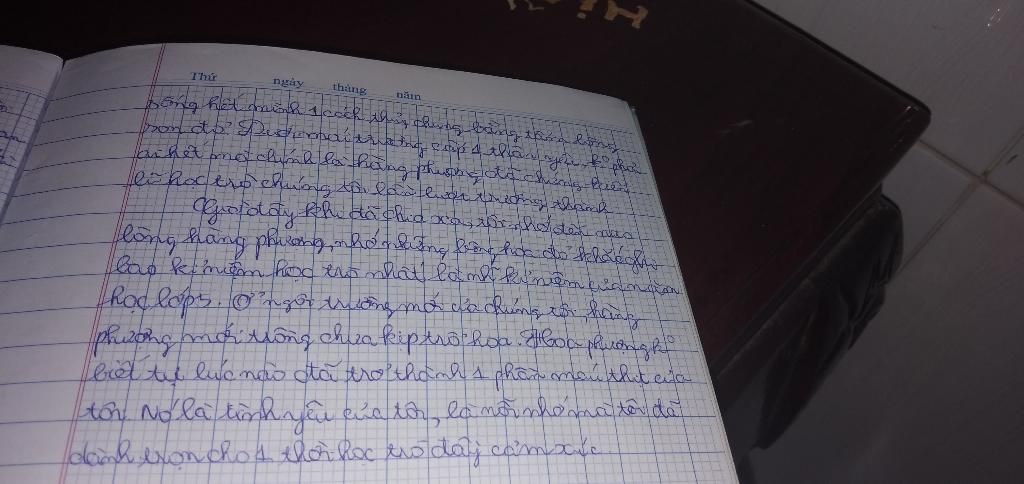 Thứ ngày tháng năm
sống hết mình 1 cách thủy chung bằng tấm lòng
son đỏ. Dưới mái trường cấp 1 thân yêu, ko phải
ai hết mà chính là hàng phượng đã chứng kiến
lũ học trò chúng tôi lần lượt trưởng thành
Giờ đây khi đã chia xa, tôi nhớ đến nao
lòng hàng phượng, nhớ những bông hoa đỏ khắc ghi
bao kỉ niệm học trò nhất là kỉ niệm của năm
học lớp 5. Ở ngôi trường mới của chúng tôi, hàng
phượng mới trồng chưa kịp trổ hoa. Hoa phượng ko
biết tự lúc nào đã trở thành 1 phần máu thịt của
tôi. Nó là tình yêu của tôi, là nỗi nhớ mà tôi đã
dành trọn cho 1 thời học trò đầy cảm xúc.